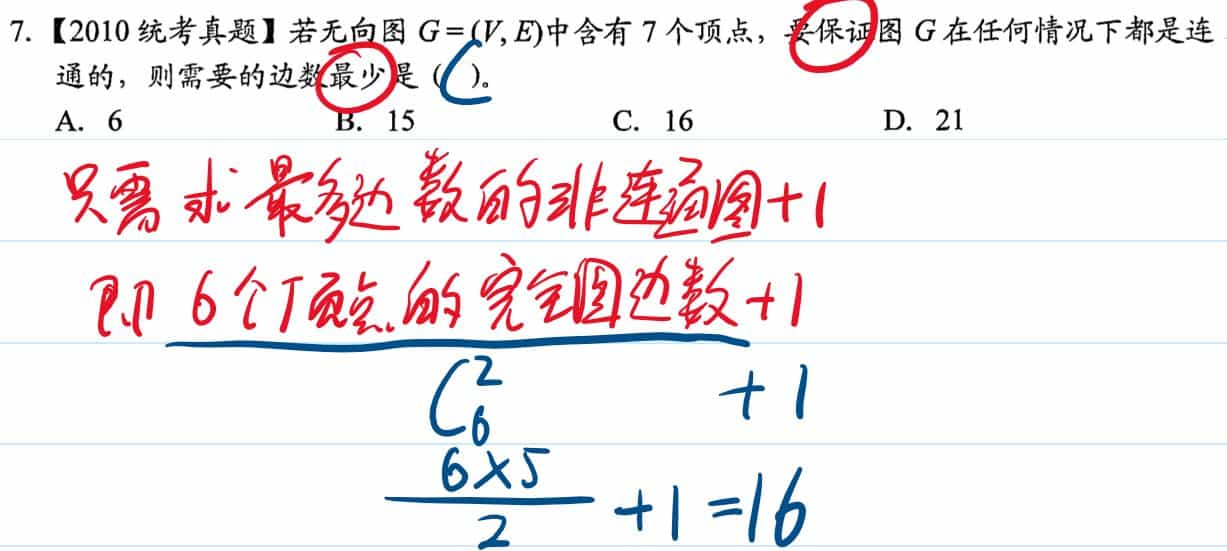 7. 【2010 统考真题】若无向图 G = (V, E)中含有 7 个顶点，要保证图 G 在任何情况下都是连
通的，则需要的边数最少是（C）。
A. 6 B. 15 C. 16 D. 21
只需求最多边数的非连通图+1
即 6个顶点的完全图边数+1
C₆² + 1
6×5/2 +1=16